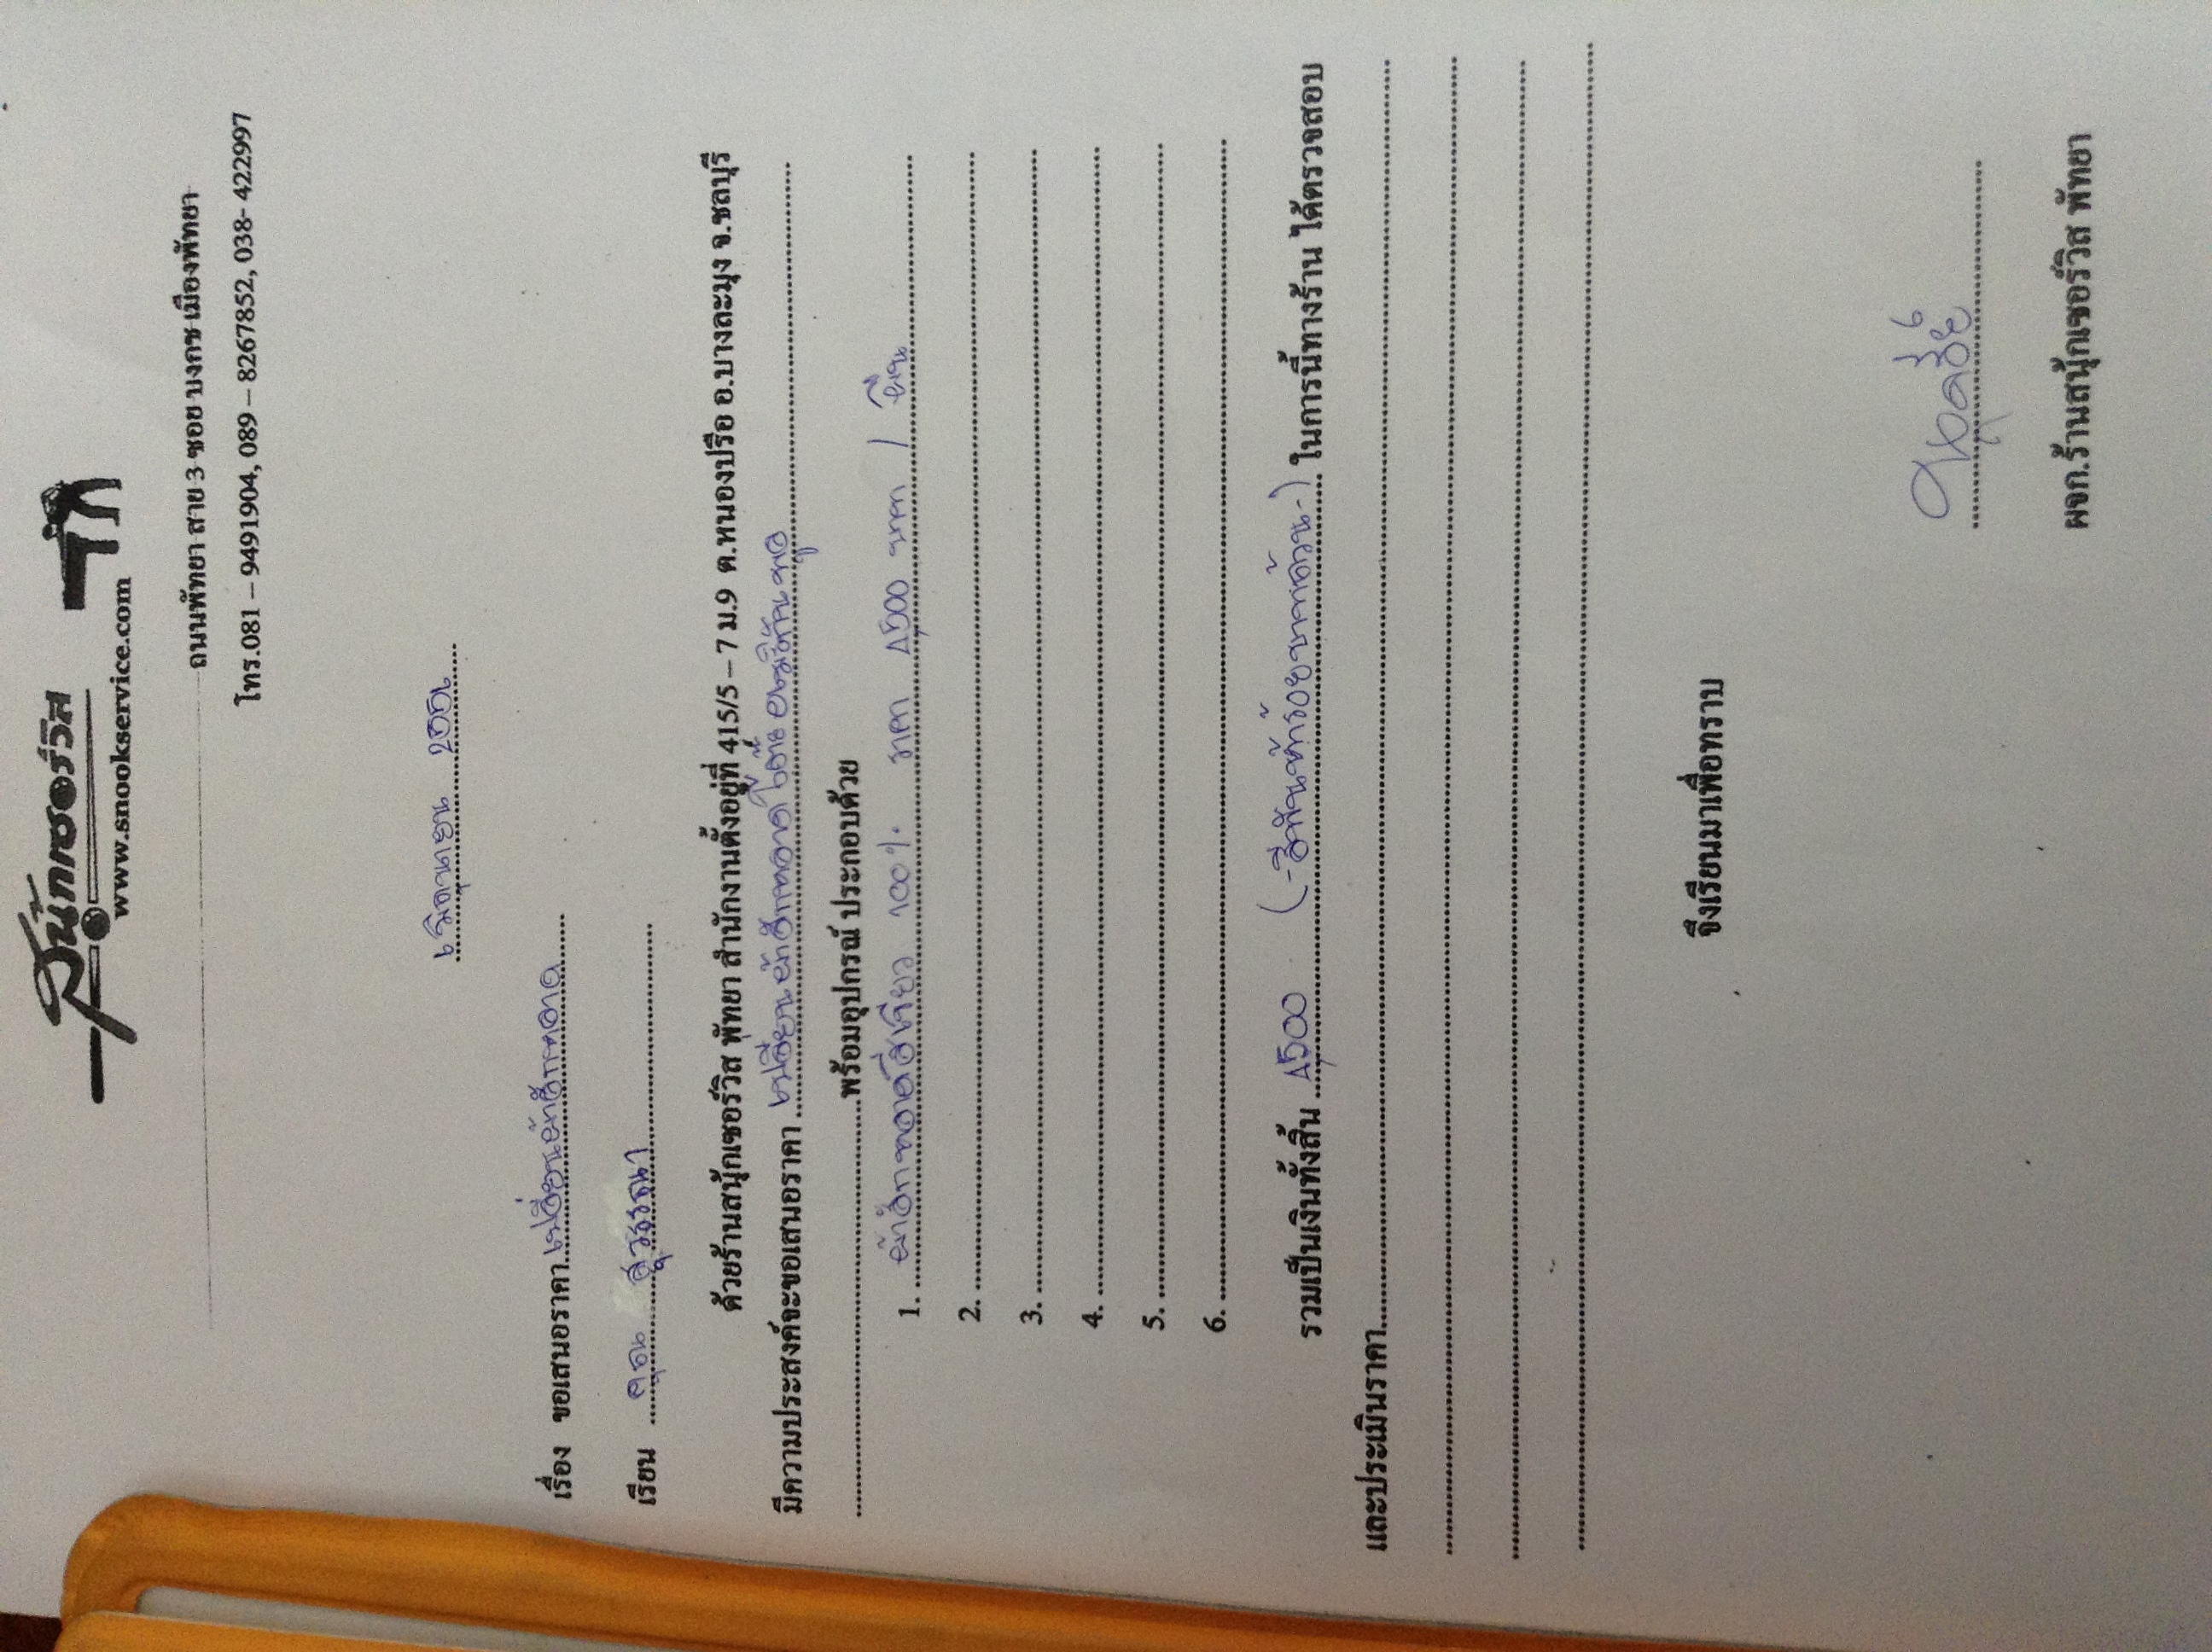 สนุ้กเซอร์วิส
www.snookservice.com
ถนนพัทยา สาย 3 ซอย บงกช เมืองพัทยา
โทร.081 – 9491904, 089 – 8267852, 038- 422997
6 มิถุนายน 2556
เรื่อง ขอเสนอราคา เปลี่ยนผ้าสักหลาด
เรียน คุณ สุวรรณา
ด้วยร้านสนุ้กเซอร์วิส พัทยา สำนักงานตั้งอยู่ที่ 415/5 – 7 ม.9 ต.หนองปรือ อ.บางละมุง จ.ชลบุรี
มีความประสงค์จะขอเสนอราคา เปลี่ยนผ้าสักหลาดโต๊ะอเมริกันพูล
พร้อมอุปกรณ์ ประกอบด้วย
1. ผ้าสักหลาดสีเขียว 100% ราคา 4,500 บาท / ผืน
2.
3.
4.
5.
6.
รวมเป็นเงินทั้งสิ้น 4,500 (-สี่พันห้าร้อยบาทถ้วน-) ในการนี้ทางร้าน ได้ตรวจสอบ
และประเมินราคา
จึงเรียนมาเพื่อทราบ
ผจก.ร้านสนุ้กเซอร์วิส พัทยา